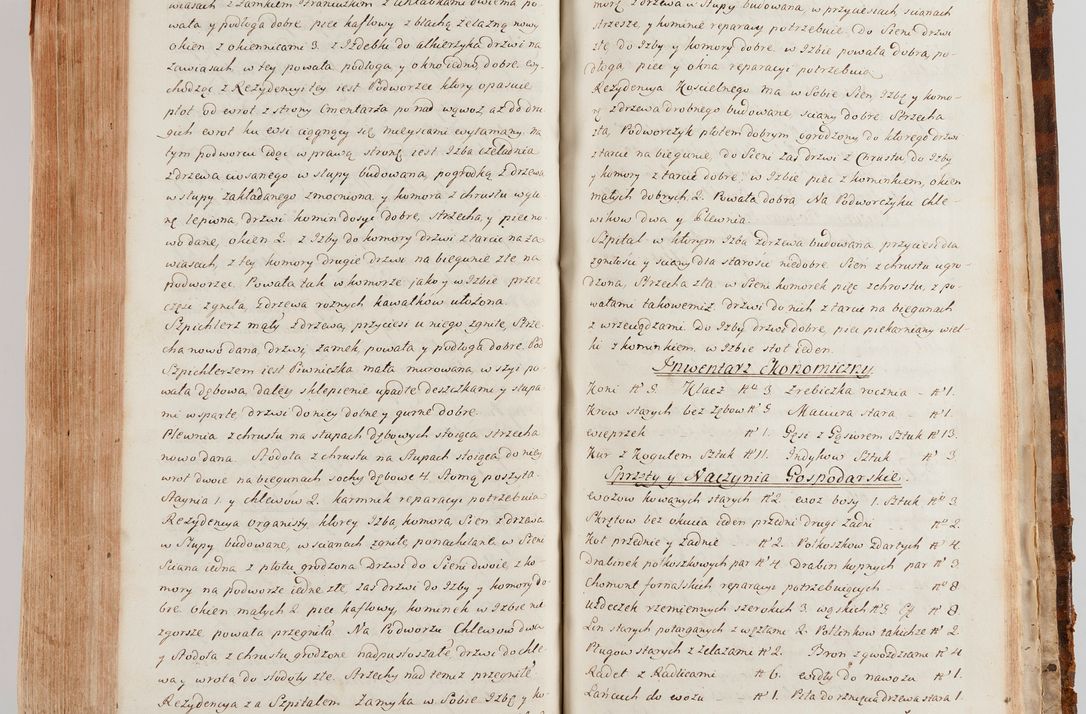 wiasach z Zamkiem Francuzkim z Antabkami dwiema po-
wała y podłoga dobre piec kaflowy z blachą żelazną nowy
okien z okiennicami 3. z Izdebki do alkierzyka drzwi na
Zawiasach, w tey powała podłoga y okno iedno dobre. Wy-
chodząc z Rezydencyi tey iest Podworzec ktory opasuie
płot od wrot z strony Cmentarza ponad wąwoz, aż do dru
gich wrot ku wsi ciągnący się mieyscami wyłamany. Na
tym podworcu idąc w prawą stronę iest Izba Czeladnia
z drzewa ciosanego w słupy budowana, pogrodką z drzewa
w słupy zakładanego zmocniona, y komora z chrustu w gli
nę lepiona drzwi komin dosyć dobre, strzecha, y piec no-
wo dane, okien 2. z Izby do komory drzwi z tarcic na za-
wiasach, z tey komory drugie drzwi na biegunie złe na
podworzec. Powała tak w komorze jako y w Izbie przez
częsc zgniła, z drzewa roznych kawałków ułożona.
Szpichlerz mały z drzewa, przyciesi u niego zgniłe, Strze-
cha nowo dana, drzwi, zamek, powała y podłoga dobre. Pod
Szpichlerzem iest Piwniczka mała murowana, w szyi po-
wała dębowa, daley sklepienie upadłe deszczkami y słupa
mi wsparte, drzwi do niey dolne y gurne dobre.
Plewnia z chrustu na słupach dębowych stoiąca strzecha
nowo dana. Stodoła z chrustu na Słupach stoiąca do niey
wrot dwoie na biegunach sochy dębowe 4. Słomą poszyta.
Staynia 1. y chlewów 2. karmnik reparacyi potrzebuią
Rezydencya organisty, ktorey Izba, komora, Sien z drzewa
w Słupy budowane, w scianach zgniłe, ponachilane. w Sieni
Sciana iedna z płotu grodzona. Drzwi do Sieni dwoie, z ko-
mory na podworze iedne złe, zaś drzwi do Izby y komory do-
bre. okien małych 2. piec kaflowy, kominek w Izbie nie
zgorsze powała przegniła. Na Podworzu Chlewow dwa
y Stodoła z chrustu grodzone nadpustoszałe, drzwi do chle
wa y wrota do stodoły złe. Strzechy nad temiż przegniłe.
Rezydencya za Szpitalem zamyka w Sobie Izbę y ko-
morę z drzewa w słupy budowana, w przyciesiach scianach
strzesze, y kominie reparacyi potrzebuie. do Sieni drzwi
złe, do Izby y komory dobre. w Izbie powała dobra, po-
dłoga piec y okna reparacyi potrzebuią
Rezydencya Koscielnego ma w Sobie Sien, Izbę y komo-
rę z drzewa drobnego budowane, sciany dobre, Strzecha
zła, Podworczyk płotem dobrym ogrodzony do ktorego drzwi
z tarcic na biegunie, do Sieni zaś drzwi z Chrustu do Izby
y komory z tarcic dobre, w Izbie piec z kominkiem, okien
małych dobrych 2. Powała dobra. Na Podworczyku chle-
wikow dwa y Plewnia.
Szpital w ktorym Izba z drzewa budowana, przyciesi dla
zgniłosci y sciany dla starosci niedobre, Sien z chrustu ugro-
dzona, Strzecha zła, w Sieni komorek pięc z chrustu, z po-
wałami takowemiż, drzwi do nich z tarcic na biegunach
z wrzeciądzami. Do Izby drzwi dobre, piec piekarniany wiel-
ki z kominkiem, w Izbie stoł ieden.
Inwentarz Ekonomiczny.
Koni Nº 5. Klacz Nro 3. Zrebiczka rocznia - Nº 1.
Krow starych bez zębow Nº 5 Maciura stara - Nº 1.
Wieprzek - - Nº 1. Gęsi z Gąsiorem Sztuk Nº 13.
Kur z Kogutem Sztuk Nº 11. Indykow Sztuk Nº 3
Sprzęty y Naczynia Gospodarskie.
Wozow kowanych starych Nº 2. woz bosy 1. Sztuk Nro 3
Skrętow bez okucia ieden przedni drugi Zadni - Nro 2.
Koł przednie y Zadnie - Nº 2. Połkoszkow zdartych Nº 4.
Drabinek połkoszkowych par Nº 4 Drabin kupnych par Nº 3
Chomont fornalskich reparacyi potrzebuiących - Nro 8
Uzdeczek rzemiennych szerokich 3 wąskich Nº 5. Nº 8
Lin starych potarganych z węzłami 2. Postronkow takichże Nº 2.
Pługow starych z żelazami Nº 2. Bron z gwozdziami Nº 4
Radeł z Radlicami - Nº 6. widły do nawozu - Nº 1.
Łancuch do wozu - Nº 1. Piła do rznięcia drzewa stara 1.